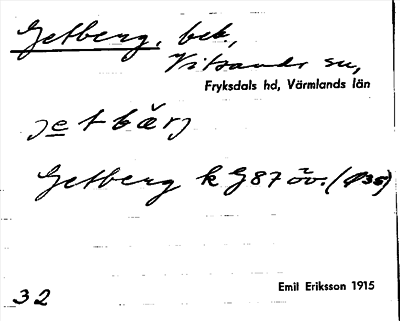 Getberg, beb.,
Vitsands sn,
Fryksdals hd, Värmlands län
jetbärj
Getberg k G87 öv. (Ø35)
32
Emil Eriksson 1915